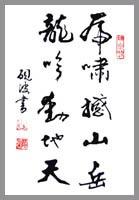 虎啸撼山岳
龙吟动地天
砚波书